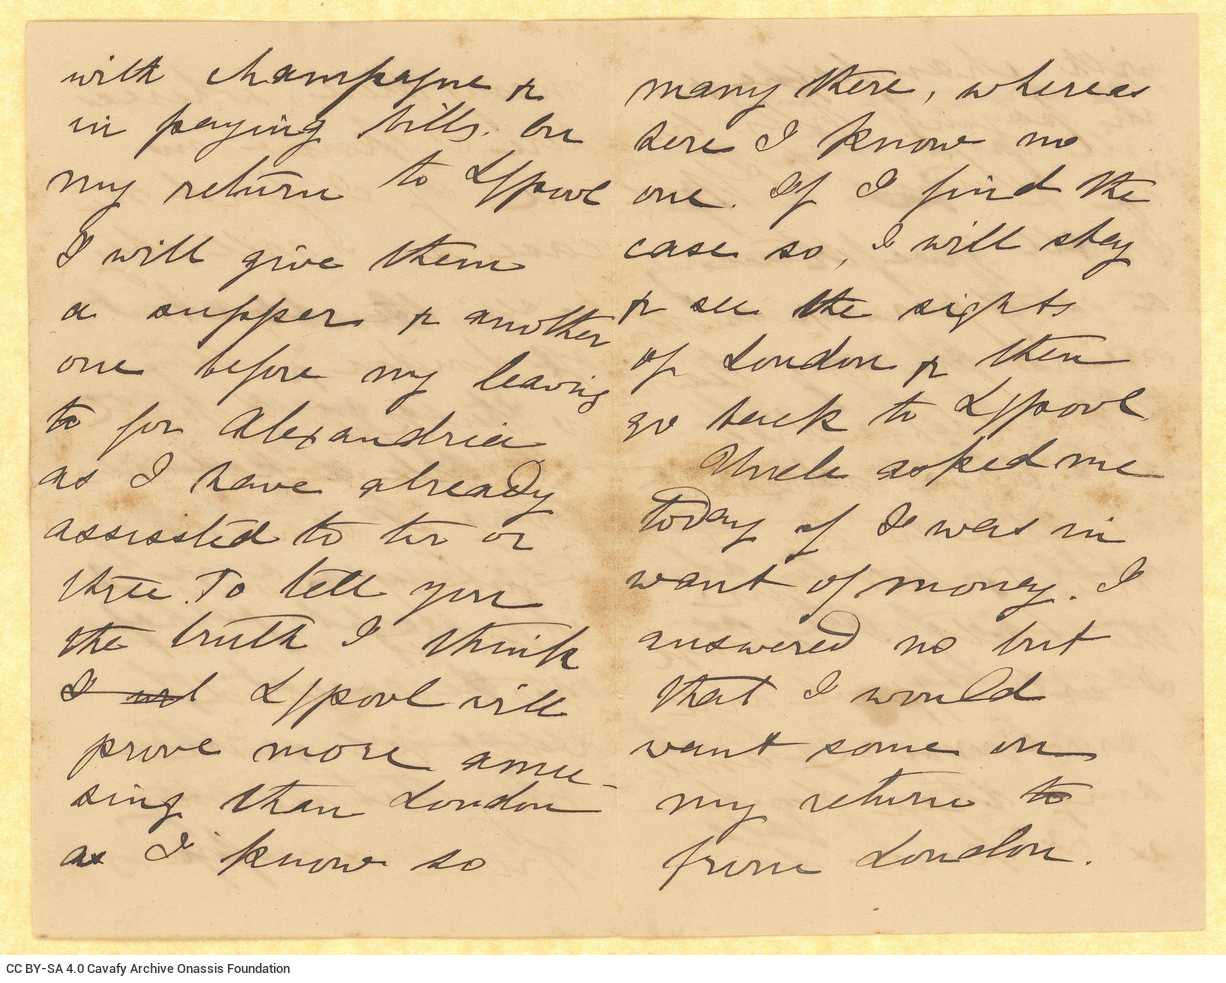 with champagne &
in paying bills. On
my return to L/pool
I will give them
a supper & another
one before my leaving
to for Alexandria
as I have already
assissted to two or
three. To tell you
the truth I think
I L/pool will
prove more amu-
sing than London
as I know so
many there, whereas
here I know no
one. If I find the
case so, I will stay
& see the sights
of London & then
go back to L/pool.
Uncle asked me
today if I was in
want of money. I
answered no but
that I would
want some on
my return to
from London.
CC BY-SA 4.0 Cavafy Archive Onassis Foundation